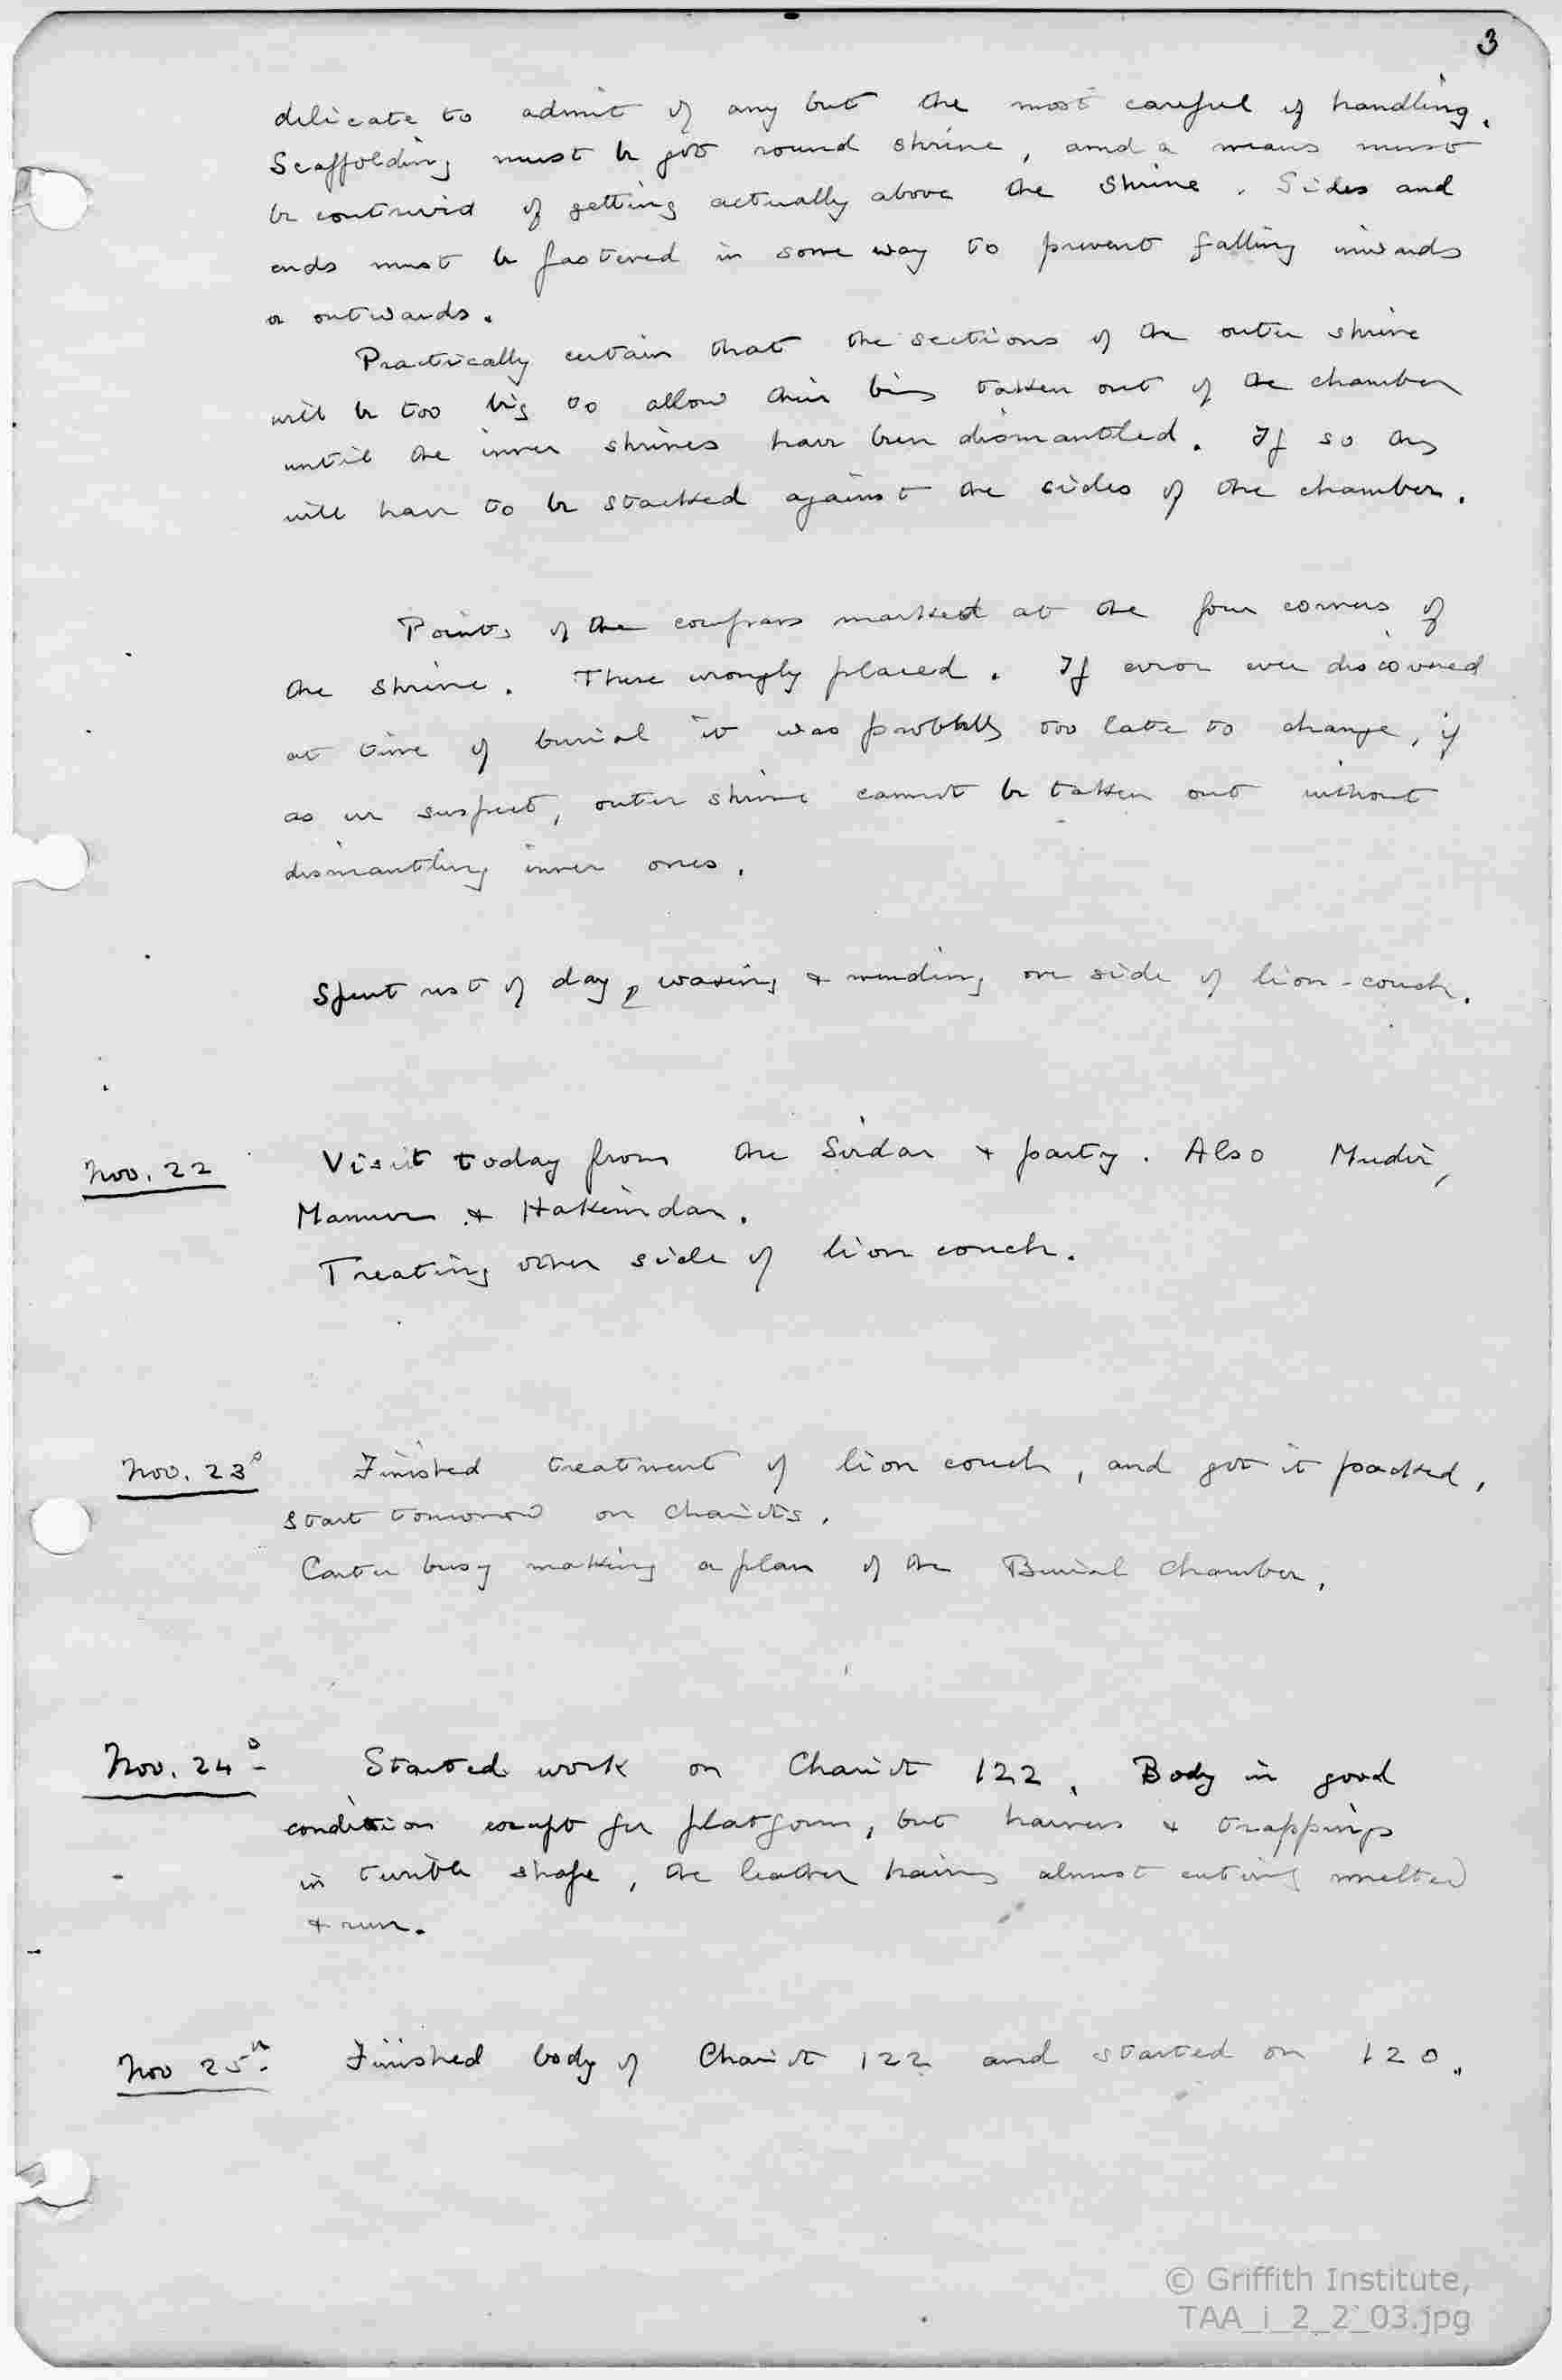 3
delicate to admit of any but the most careful of handling.
Scaffolding must be got round shrine, and a means must
be contrived of getting actually above the shrine. Sides and
ends must be fastened in some way to prevent falling inwards
or outwards.
Practically certain that the sections of the outer shrine
will be too big to allow their being taken out of the chamber
until the inner shrines have been dismantled. If so they
will have to be stacked against the sides of the chamber.
Points of the compass marked at the four corners of
the shrine. These wrongly placed. If error ever discovered
at time of burial it was probably too late to change, if
as we suspect, outer shrine cannot be taken out without
dismantling inner ones.
Spent rest of day, waxing & mending one side of lion-couch.
Nov. 22 Visit today from the Sirdar & party. Also Mudir,
Mamur & Hakimdar.
Treating other side of lion couch.
Nov. 23d Finished treatment of lion couch, and got it packed,
start tomorrow on chariots.
Carter busy making a plan of the Burial Chamber.
Nov. 24 Started work on Chariot 122. Body in good
condition except for platform, but harness & trappings
in terrible shape, the leather having almost entirely melted
& run.
Nov 25th Finished body of Chariot 122 and started on 120.
© Griffith Institute,
TAA_i_2_2_03.jpg